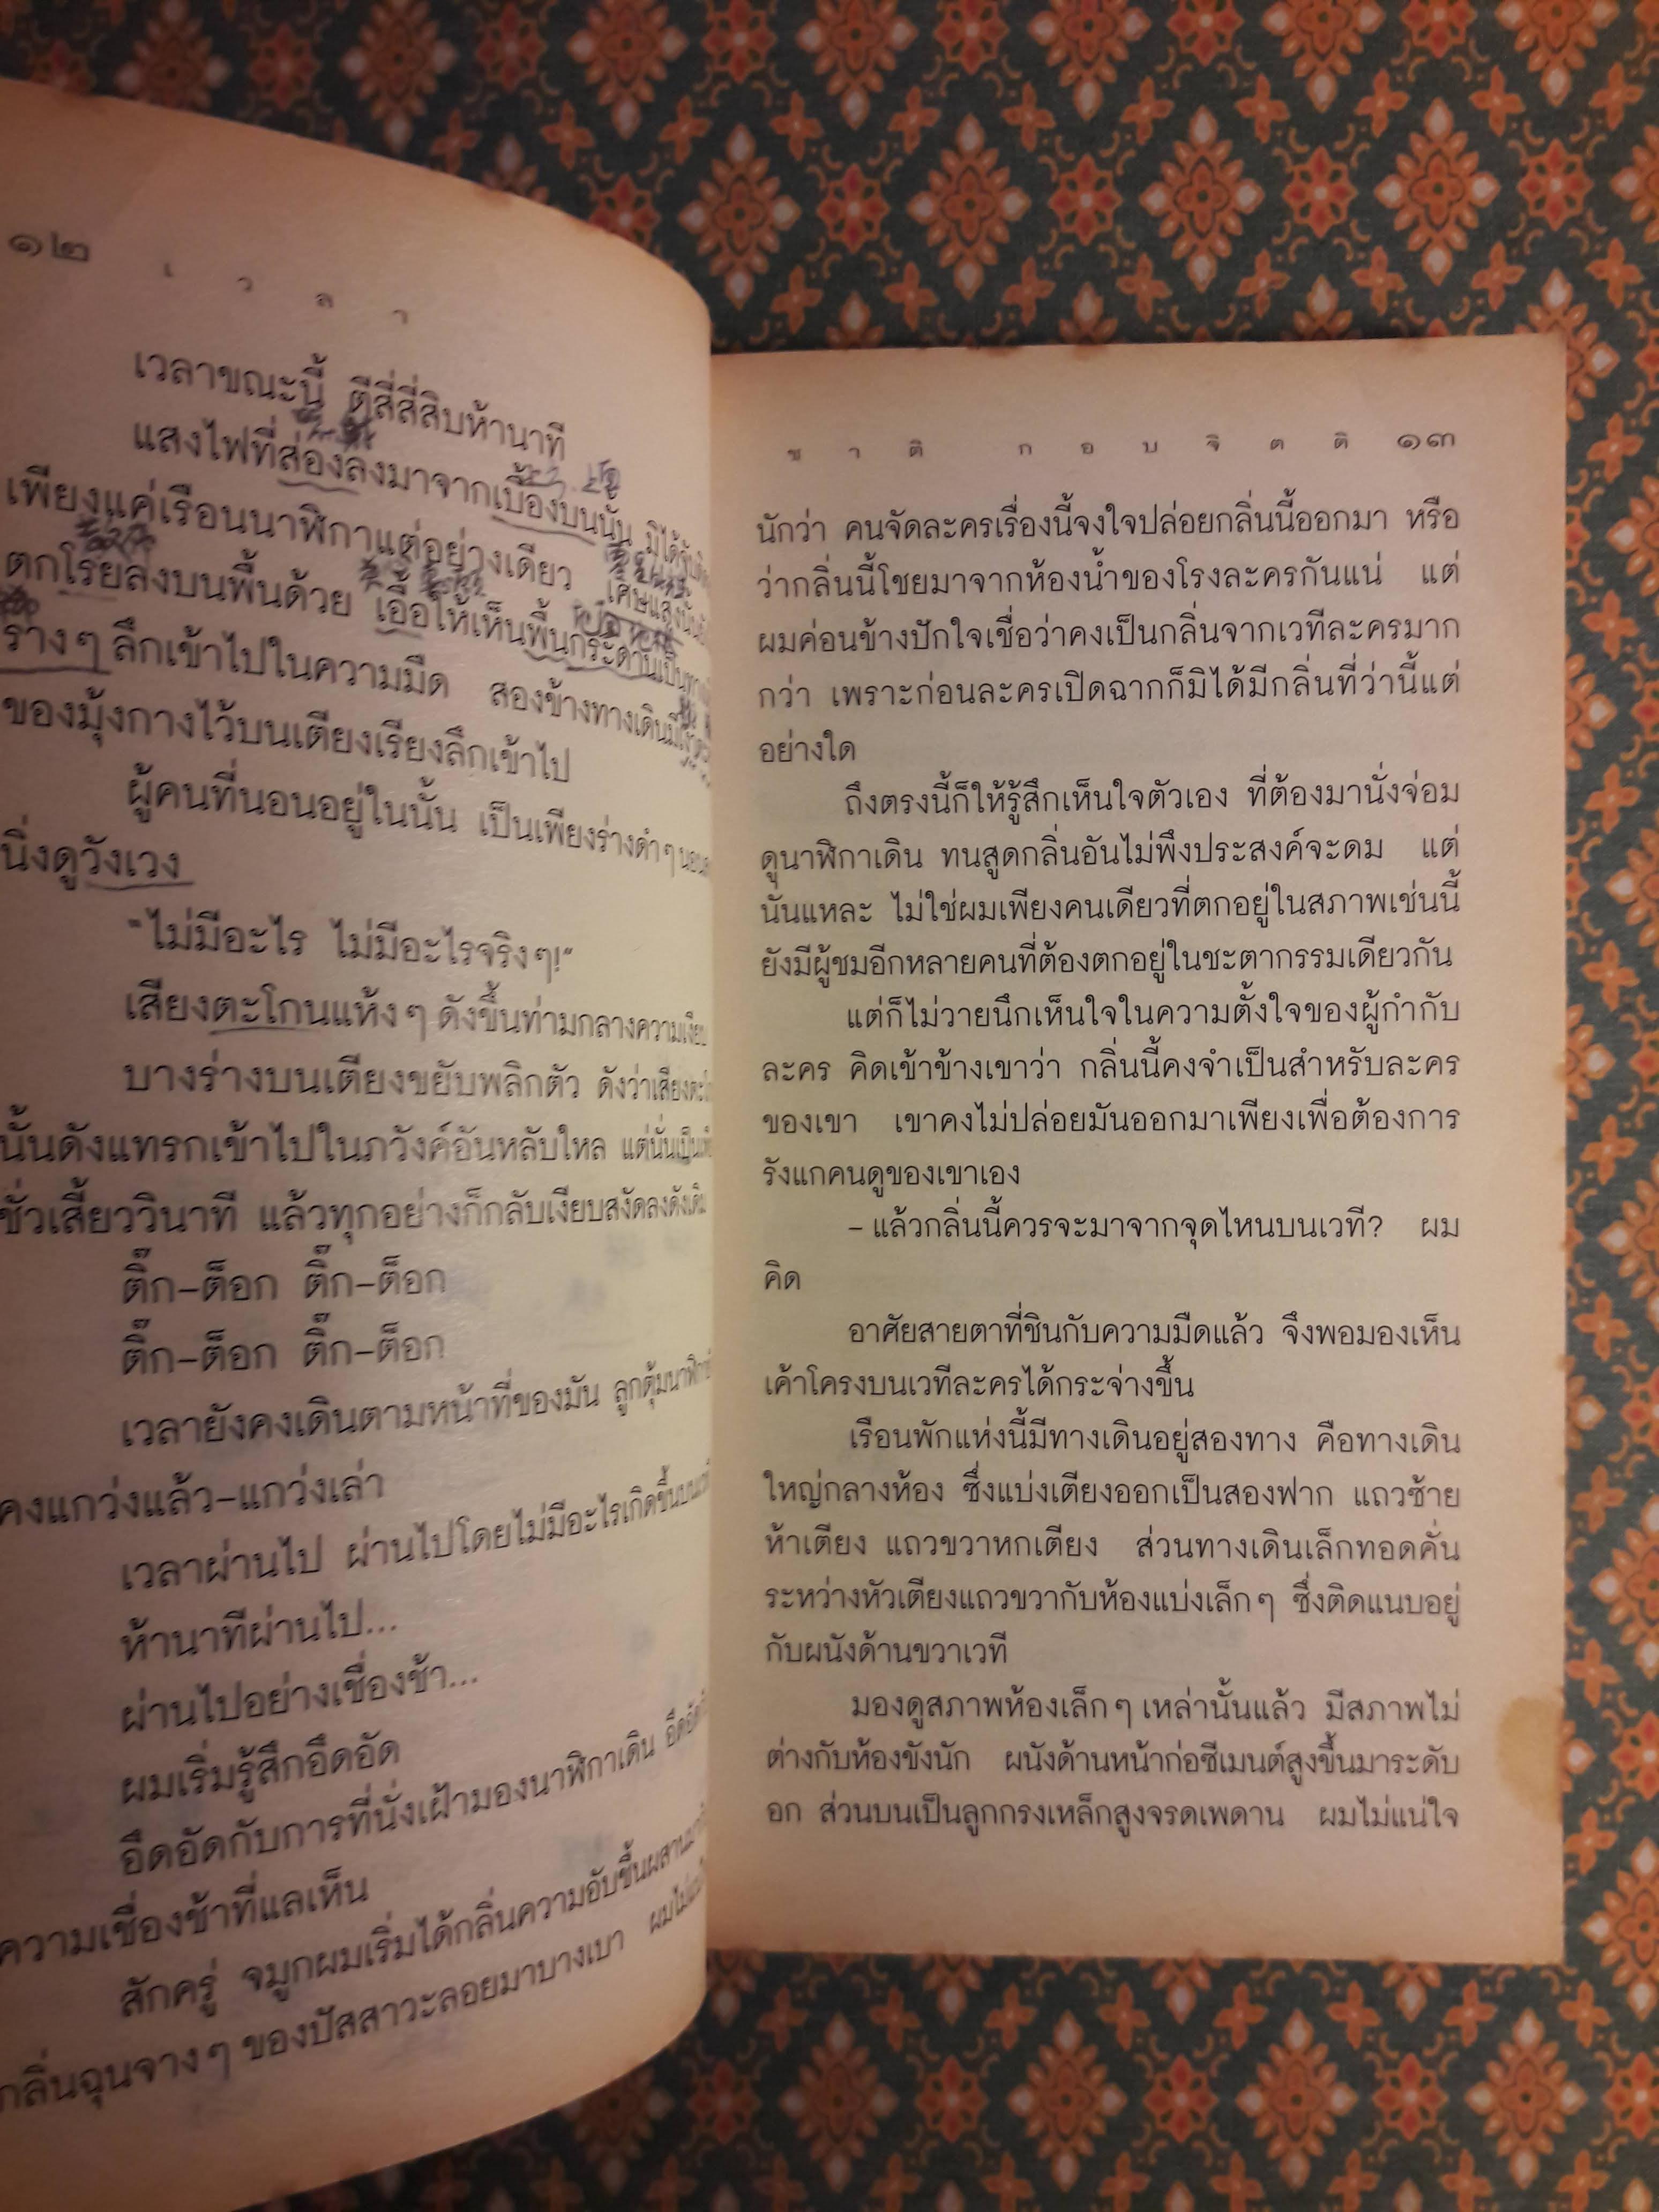 ๑๒ เวลา
เวลาขณะนี้ ตีสี่สี่สิบห้านาที
แสงไฟที่ส่องลงมาจากเบื้องบนนั้น มิได้
เพียงแค่เรือนนาฬิกาแต่อย่างเดียว เศษแสงนั้น
ตกโรยลงบนพื้นด้วย เอื้อให้เห็นพื้นกระดานเป็น
ร่างๆ ลึกเข้าไปในความมืด สองข้างทางเดินมี
ของมุ้งกางไว้บนเตียงเรียงลึกเข้าไป
ผู้คนที่นอนอยู่ในนั้น เป็นเพียงร่างดำๆ
นิ่งดูวังเวง
"ไม่มีอะไร ไม่มีอะไรจริงๆ!"
เสียงตะโกนแห้งๆ ดังขึ้นท่ามกลางความเงียบ
บางร่างบนเตียงขยับพลิกตัว ดังว่าเสียง
นั้นดังแทรกเข้าไปในภวังค์อันหลับใหล แต่นั่นเป็น
ชั่วเสี้ยววินาที แล้วทุกอย่างก็กลับเงียบสงัดลงดังเดิม
ติ๊ก–ต็อก ติ๊ก–ต็อก
ติ๊ก–ต็อก ติ๊ก–ต็อก
เวลายังคงเดินตามหน้าที่ของมัน ลูกตุ้มนาฬิกา
คงแกว่งแล้ว–แกว่งเล่า
เวลาผ่านไป ผ่านไปโดยไม่มีอะไรเกิดขึ้นบนเวที
ห้านาทีผ่านไป...
ผ่านไปอย่างเชื่องช้า...
ผมเริ่มรู้สึกอึดอัด
อึดอัดกับการที่นั่งเฝ้ามองนาฬิกาเดิน อึดอัด
ความเชื่องช้าที่แลเห็น
สักครู่ จมูกผมเริ่มได้กลิ่นความอับชื้นผสาน
กลิ่นฉุนจางๆ ของปัสสาวะลอยมาบางเบา ผมไม่
ชาติ กอบจิตติ ๑๓
นักว่า คนจัดละครเรื่องนี้จงใจปล่อยกลิ่นนี้ออกมา หรือ
ว่ากลิ่นนี้โชยมาจากห้องน้ำของโรงละครกันแน่ แต่
ผมค่อนข้างปักใจเชื่อว่าคงเป็นกลิ่นจากเวทีละครมาก
กว่า เพราะก่อนละครเปิดฉากก็มิได้มีกลิ่นที่ว่านี้แต่
อย่างใด
ถึงตรงนี้ก็ให้รู้สึกเห็นใจตัวเอง ที่ต้องมานั่งจ่อม
ดูนาฬิกาเดิน ทนสูดกลิ่นอันไม่พึงประสงค์จะดม แต่
นั่นแหละ ไม่ใช่ผมเพียงคนเดียวที่ตกอยู่ในสภาพเช่นนี้
ยังมีผู้ชมอีกหลายคนที่ต้องตกอยู่ในชะตากรรมเดียวกัน
แต่ก็ไม่วายนึกเห็นใจในความตั้งใจของผู้กำกับ
ละคร คิดเข้าข้างเขาว่า กลิ่นนี้คงจำเป็นสำหรับละคร
ของเขา เขาคงไม่ปล่อยมันออกมาเพียงเพื่อต้องการ
รังแกคนดูของเขาเอง
– แล้วกลิ่นนี้ควรจะมาจากจุดไหนบนเวที? ผม
คิด
อาศัยสายตาที่ชินกับความมืดแล้ว จึงพอมองเห็น
เค้าโครงบนเวทีละครได้กระจ่างขึ้น
เรือนพักแห่งนี้มีทางเดินอยู่สองทาง คือทางเดิน
ใหญ่กลางห้อง ซึ่งแบ่งเตียงออกเป็นสองฟาก แถวซ้าย
ห้าเตียง แถวขวาหกเตียง ส่วนทางเดินเล็กทอดคั่น
ระหว่างหัวเตียงแถวขวากับห้องแบ่งเล็กๆ ซึ่งติดแนบอยู่
กับผนังด้านขวาเวที
มองดูสภาพห้องเล็กๆ เหล่านั้นแล้ว มีสภาพไม่
ต่างกับห้องขังนัก ผนังด้านหน้าก่อซีเมนต์สูงขึ้นมาระดับ
อก ส่วนบนเป็นลูกกรงเหล็กสูงจรดเพดาน ผมไม่แน่ใจ